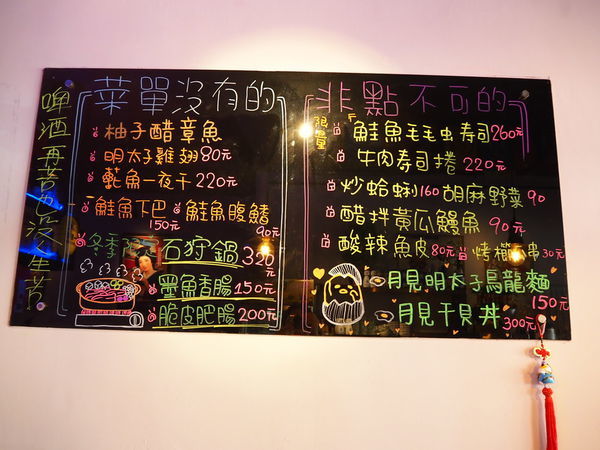 啤酒再苦也沒人生苦
菜單沒有的
柚子醋章魚
明太子雞翅80元
魠魚一夜干220元
鮭魚下巴150元 鮭魚腹鰭90元
冬季 石狩鍋320元
墨魚香腸150元
脆皮肥腸200元
非點不可的
限量
鮭魚毛毛虫寿司260元
牛肉寿司捲220元
炒蛤蜊160 胡麻野菜90
醋拌黃瓜鰻魚90元
酸辣魚皮80元 烤 串30元
月見明太子烏龍麵150元
月見干貝丼300元